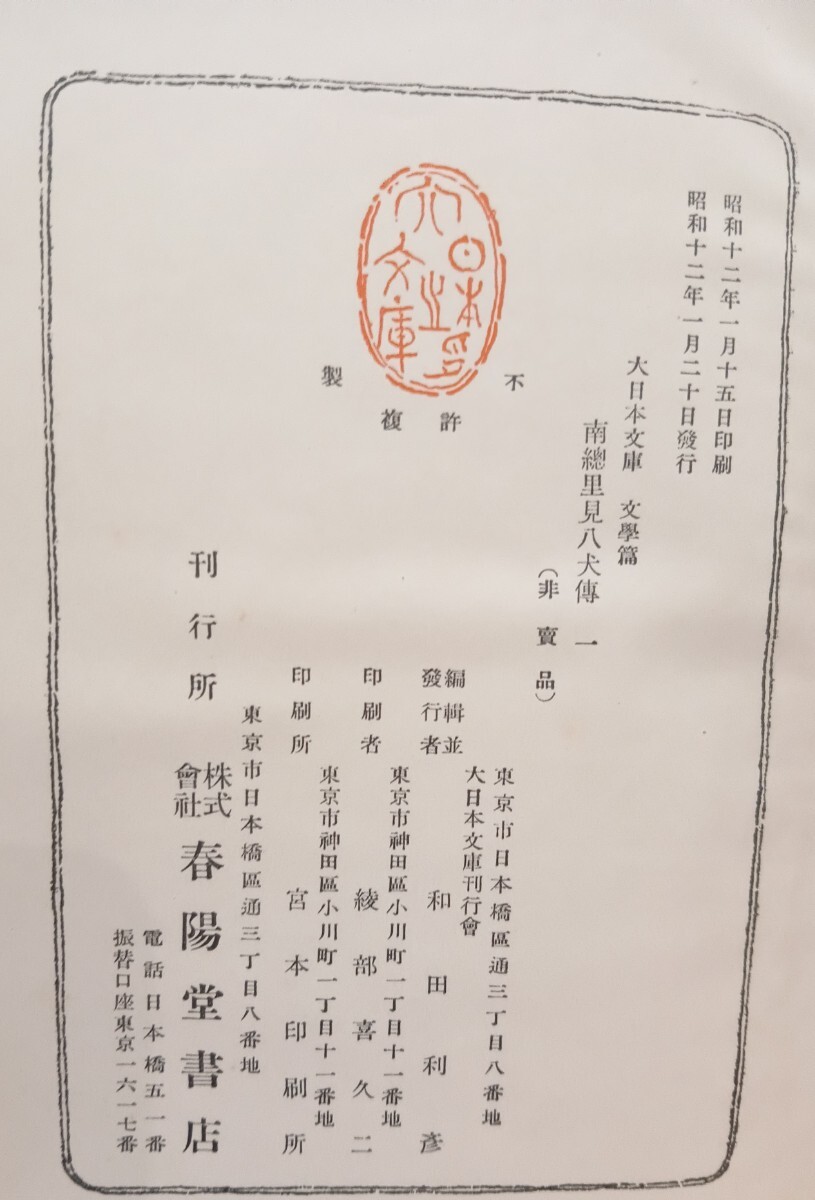 昭和十二年一月十五日印刷
昭和十二年一月二十日發行
大日本文庫 文學篇
南總里見八犬傳 一
(非賣品)
不許複製
大日本文庫之印
東京市日本橋區通三丁目八番地
大日本文庫刊行會
編輯並
發行者
和田利彥
東京市神田區小川町一丁目十一番地
印刷者
綾部喜久二
東京市神田區小川町一丁目十一番地
印刷所
宮本印刷所
東京市日本橋區通三丁目八番地
刊行所
株式
會社
春陽堂書店
電話日本橋五一番
振替口座東京一六一七番